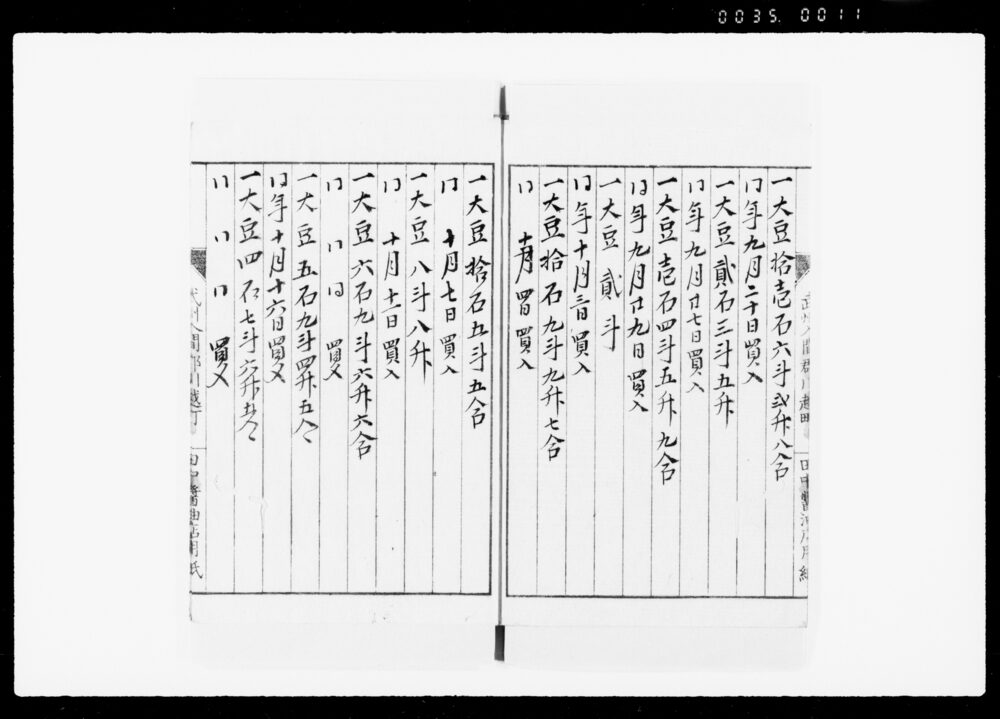 0035.0011
一大豆拾壱石六斗弐升八合
同年九月二十日買入
一大豆貳石三斗五升
同年九月廿七日買入
一大豆壱石四斗五升九合
同年九月廿九日買入
一大豆貳斗
同年十月三日買入
一大豆拾石九斗九升七合
同十月四日買入
一大豆拾石五斗五合
同十月七日買入
一大豆八斗八升
同十月十一日買入
一大豆六石九斗六升六合
同同同買入
一大豆五石九斗四升五合
同年十月十六日買入
一大豆四石七斗六升五合
同同同買入
武州入間郡川越町
田中醤油店用紙